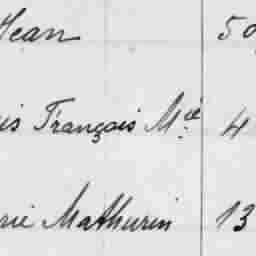 Jean 50
is François Mie 4
rie Mathurin 13